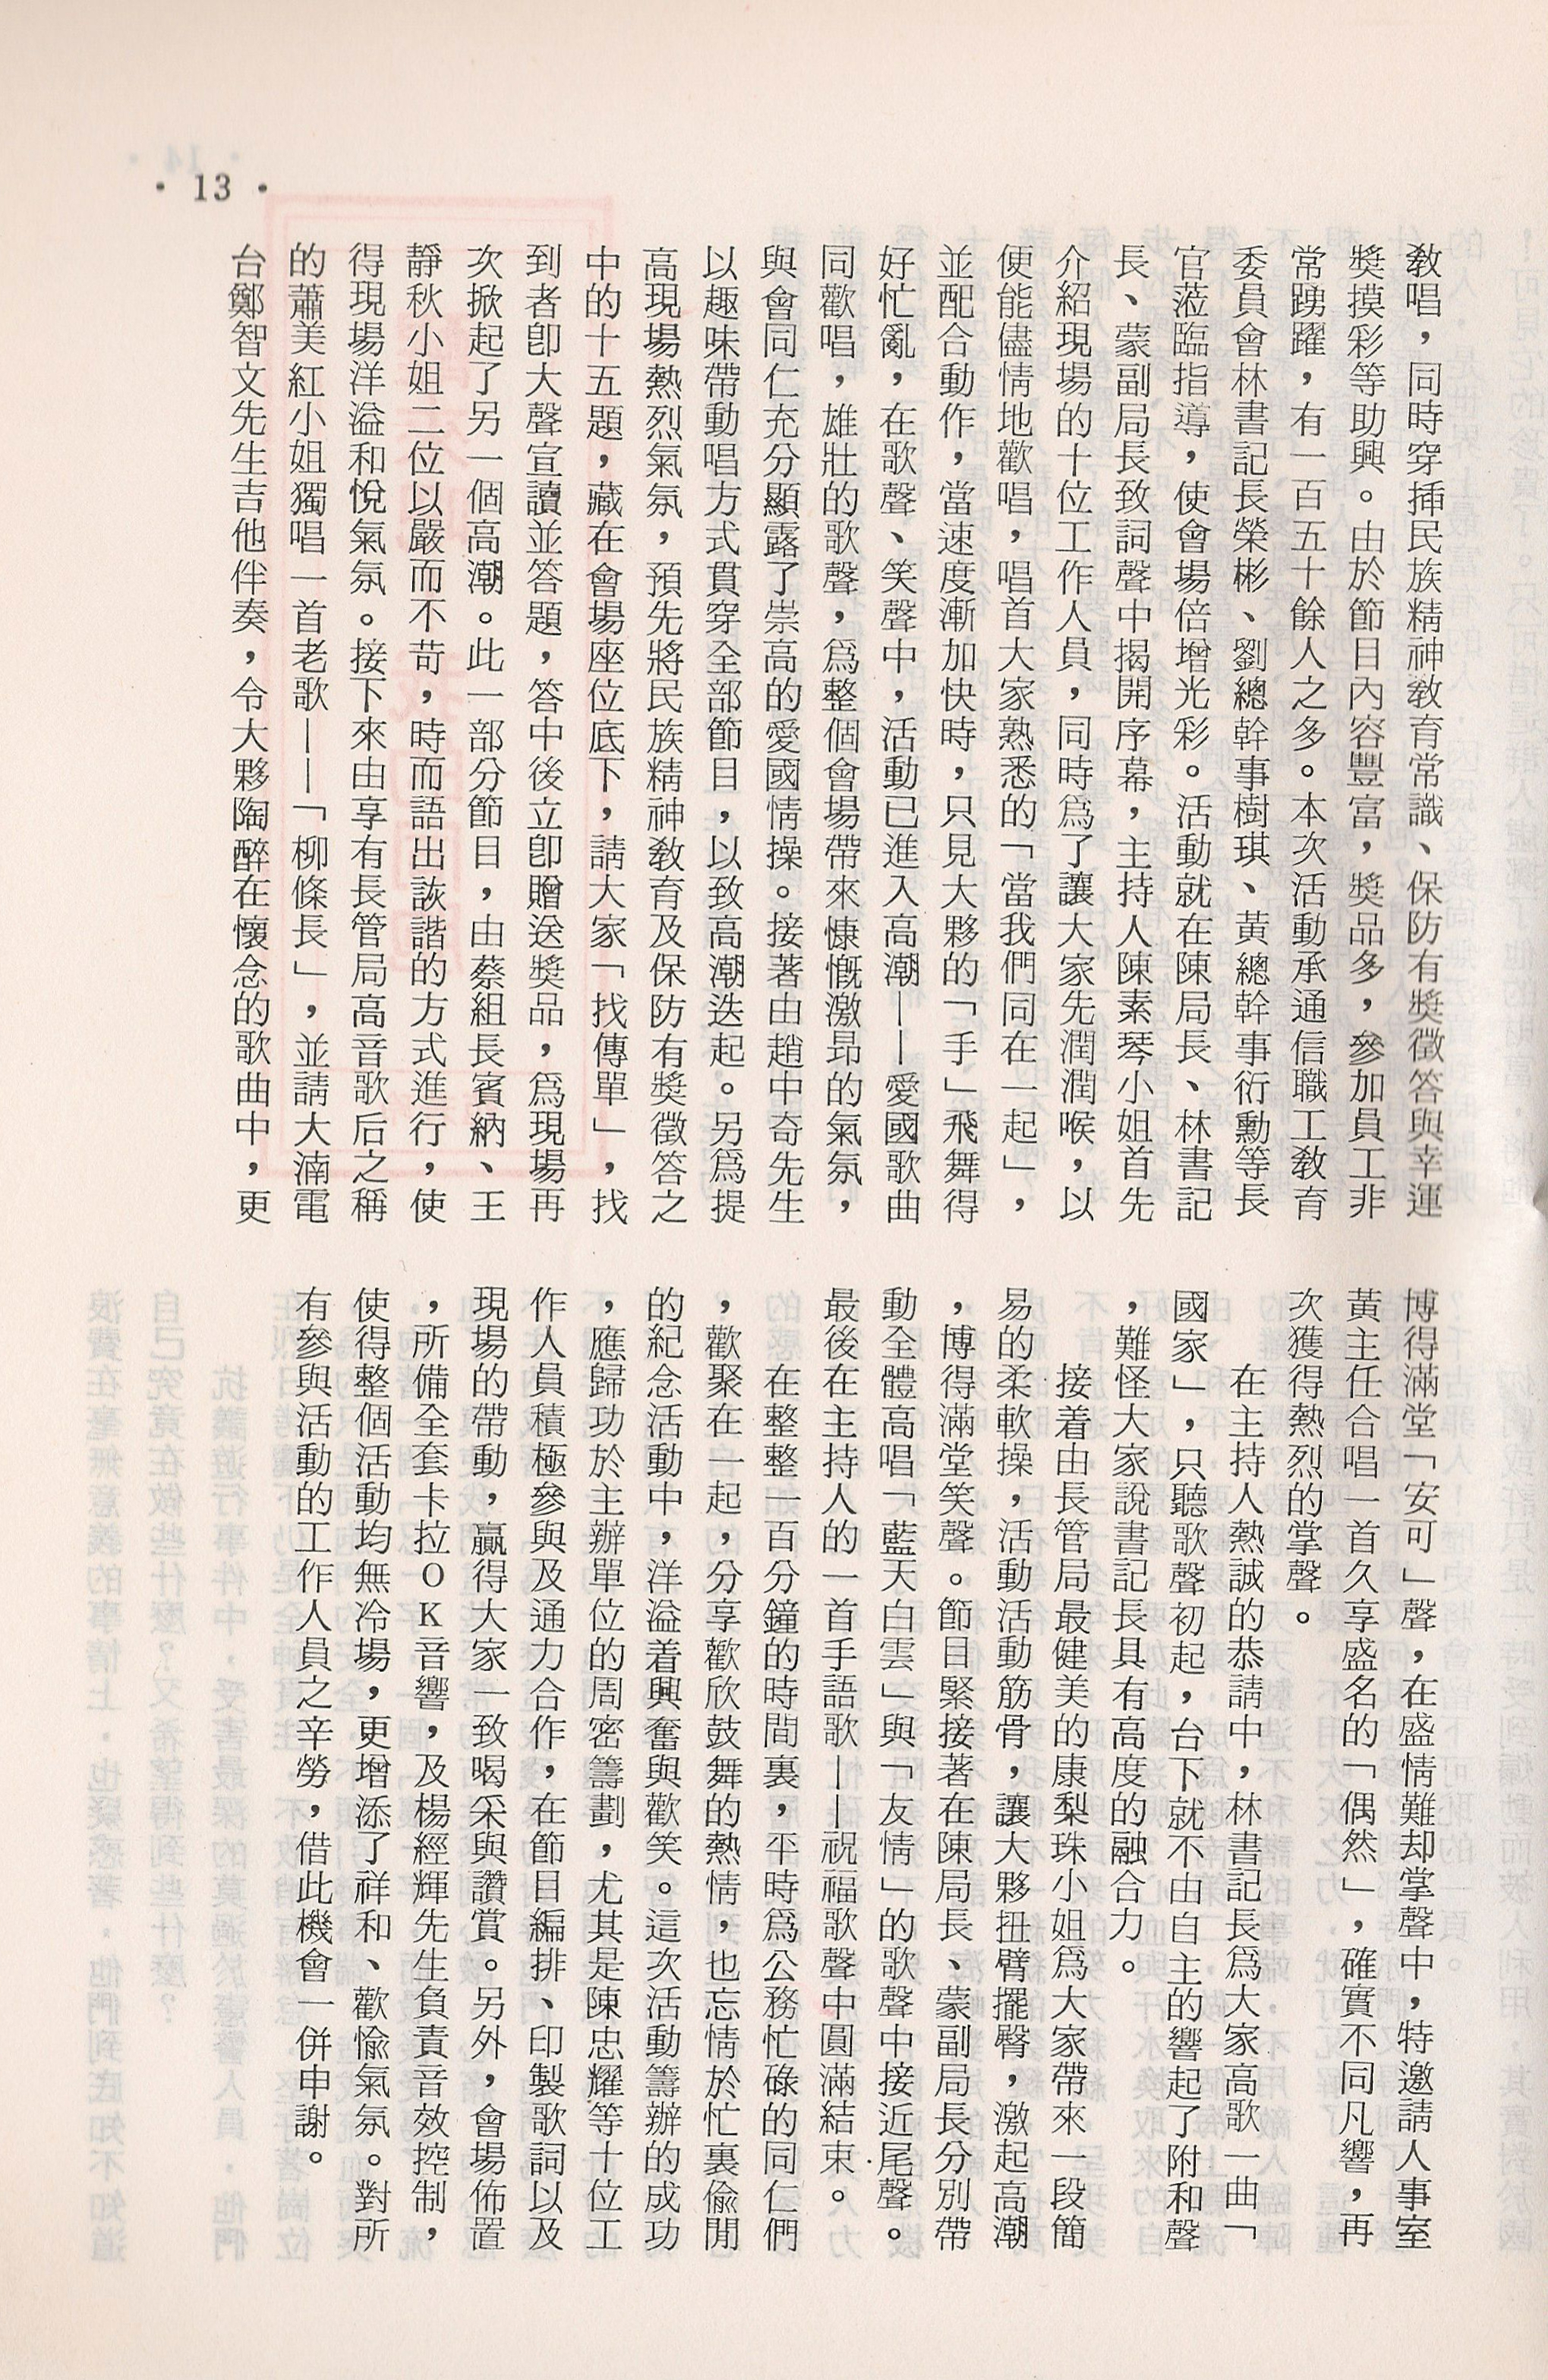 • 13 •
教唱，同時穿揷民族精神教育常識、保防有獎徵答與幸運
獎摸彩等助興。由於節目內容豐富，獎品多，參加員工非
常踴躍，有一百五十餘人之多。本次活動承通信職工教育
委員會林書記長榮彬、劉總幹事樹琪、黃總幹事衍勳等長
官蒞臨指導，使會場倍增光彩。活動就在陳局長、林書記
長、蒙副局長致詞聲中揭開序幕，主持人陳素琴小姐首先
介紹現場的十位工作人員，同時爲了讓大家先潤潤喉，以
便能儘情地歡唱，唱首大家熟悉的「當我們同在一起」，
並配合動作，當速度漸加快時，只見大夥的「手」飛舞得
好忙亂，在歌聲、笑聲中，活動已進入高潮——愛國歌曲
同歡唱，雄壯的歌聲，爲整個會場帶來慷慨激昂的氣氛，
與會同仁充分顯露了崇高的愛國情操。接著由趙中奇先生
以趣味帶動唱方式貫穿全部節目，以致高潮迭起。另爲提
高現場熱烈氣氛，預先將民族精神教育及保防有獎徵答之
中的十五題，藏在會場座位底下，請大家「找傳單」，找
到者卽大聲宣讀並答題，答中後立卽贈送獎品，爲現場再
次掀起了另一個高潮。此一部分節目，由蔡組長賓納、王
靜秋小姐二位以嚴而不苛，時而語出詼諧的方式進行，使
得現場洋溢和悅氣氛。接下來由享有長管局高音歌后之稱
的蕭美紅小姐獨唱一首老歌——「柳條長」，並請大湳電
台鄭智文先生吉他伴奏，令大夥陶醉在懷念的歌曲中，更
博得滿堂「安可」聲，在盛情難却掌聲中，特邀請人事室
黃主任合唱一首久享盛名的「偶然」，確實不同凡響，再
次獲得熱烈的掌聲。
在主持人熱誠的恭請中，林書記長爲大家高歌一曲「
國家」，只聽歌聲初起，台下就不由自主的響起了附和聲
，難怪大家說書記長具有高度的融合力。
接着由長管局最健美的康梨珠小姐爲大家帶來一段簡
易的柔軟操，活動活動筋骨，讓大夥扭臂擺臀，激起高潮
，博得滿堂笑聲。節目緊接著在陳局長、蒙副局長分別帶
動全體高唱「藍天白雲」與「友情」的歌聲中接近尾聲。
最後在主持人的一首手語歌——祝福歌聲中圓滿結束。
在整整一百分鐘的時間裏，平時爲公務忙碌的同仁們
，歡聚在一起，分享歡欣鼓舞的熱情，也忘情於忙裏偷閒
的紀念活動中，洋溢着興奮與歡笑。這次活動籌辦的成功
，應歸功於主辦單位的周密籌劃，尤其是陳忠耀等十位工
作人員積極參與及通力合作，在節目編排、印製歌詞以及
現場的帶動，贏得大家一致喝采與讚賞。另外，會場佈置
，所備全套卡拉OK音響，及楊經輝先生負責音效控制，
使得整個活動均無冷場，更增添了祥和、歡愉氣氛。對所
有參與活動的工作人員之辛勞，借此機會一併申謝。